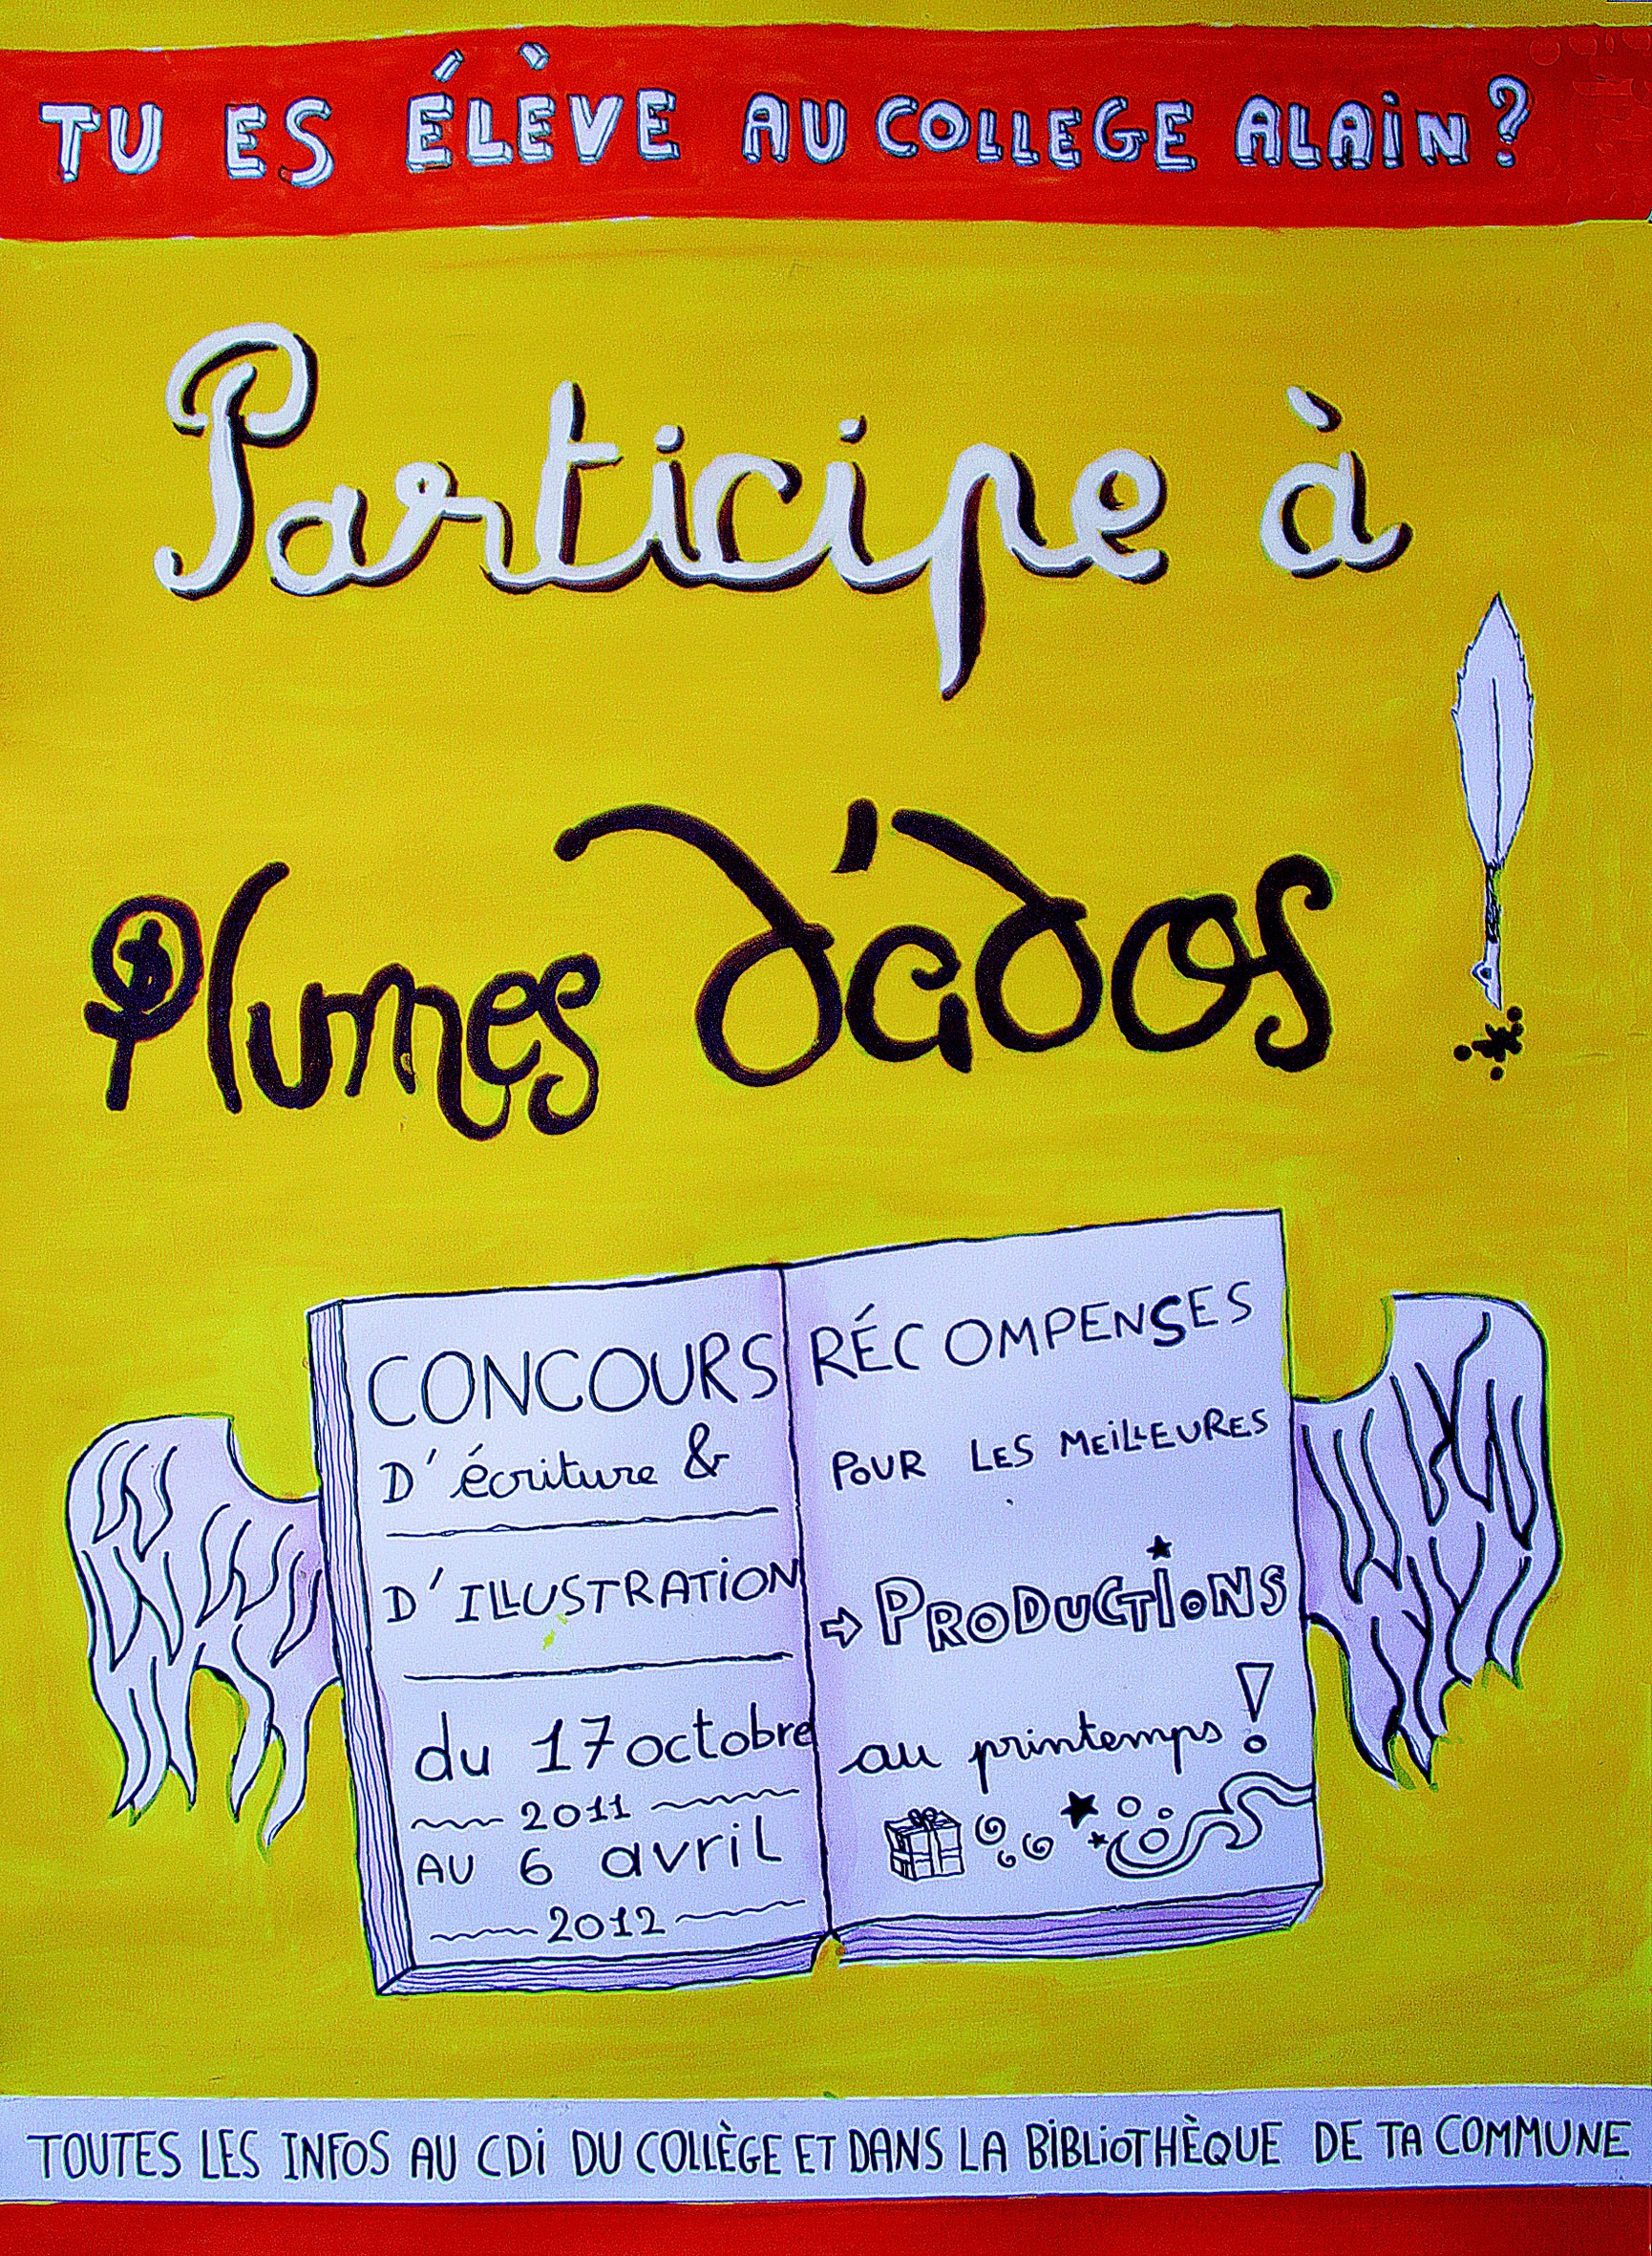 TU ES ÉLÈVE AU COLLEGE ALAIN ?
Participe à
Plumes d'ados
CONCOURS
D'écriture &
D'ILLUSTRATION
du 17 octobre
2011
AU 6 avril
2012
RÉCOMPENSES
POUR LES MEILLEURES
⇨ PRODUCTIONS
au printemps !
TOUTES LES INFOS AU CDI DU COLLÈGE ET DANS LA BIBLIOTHÈQUE DE TA COMMUNE